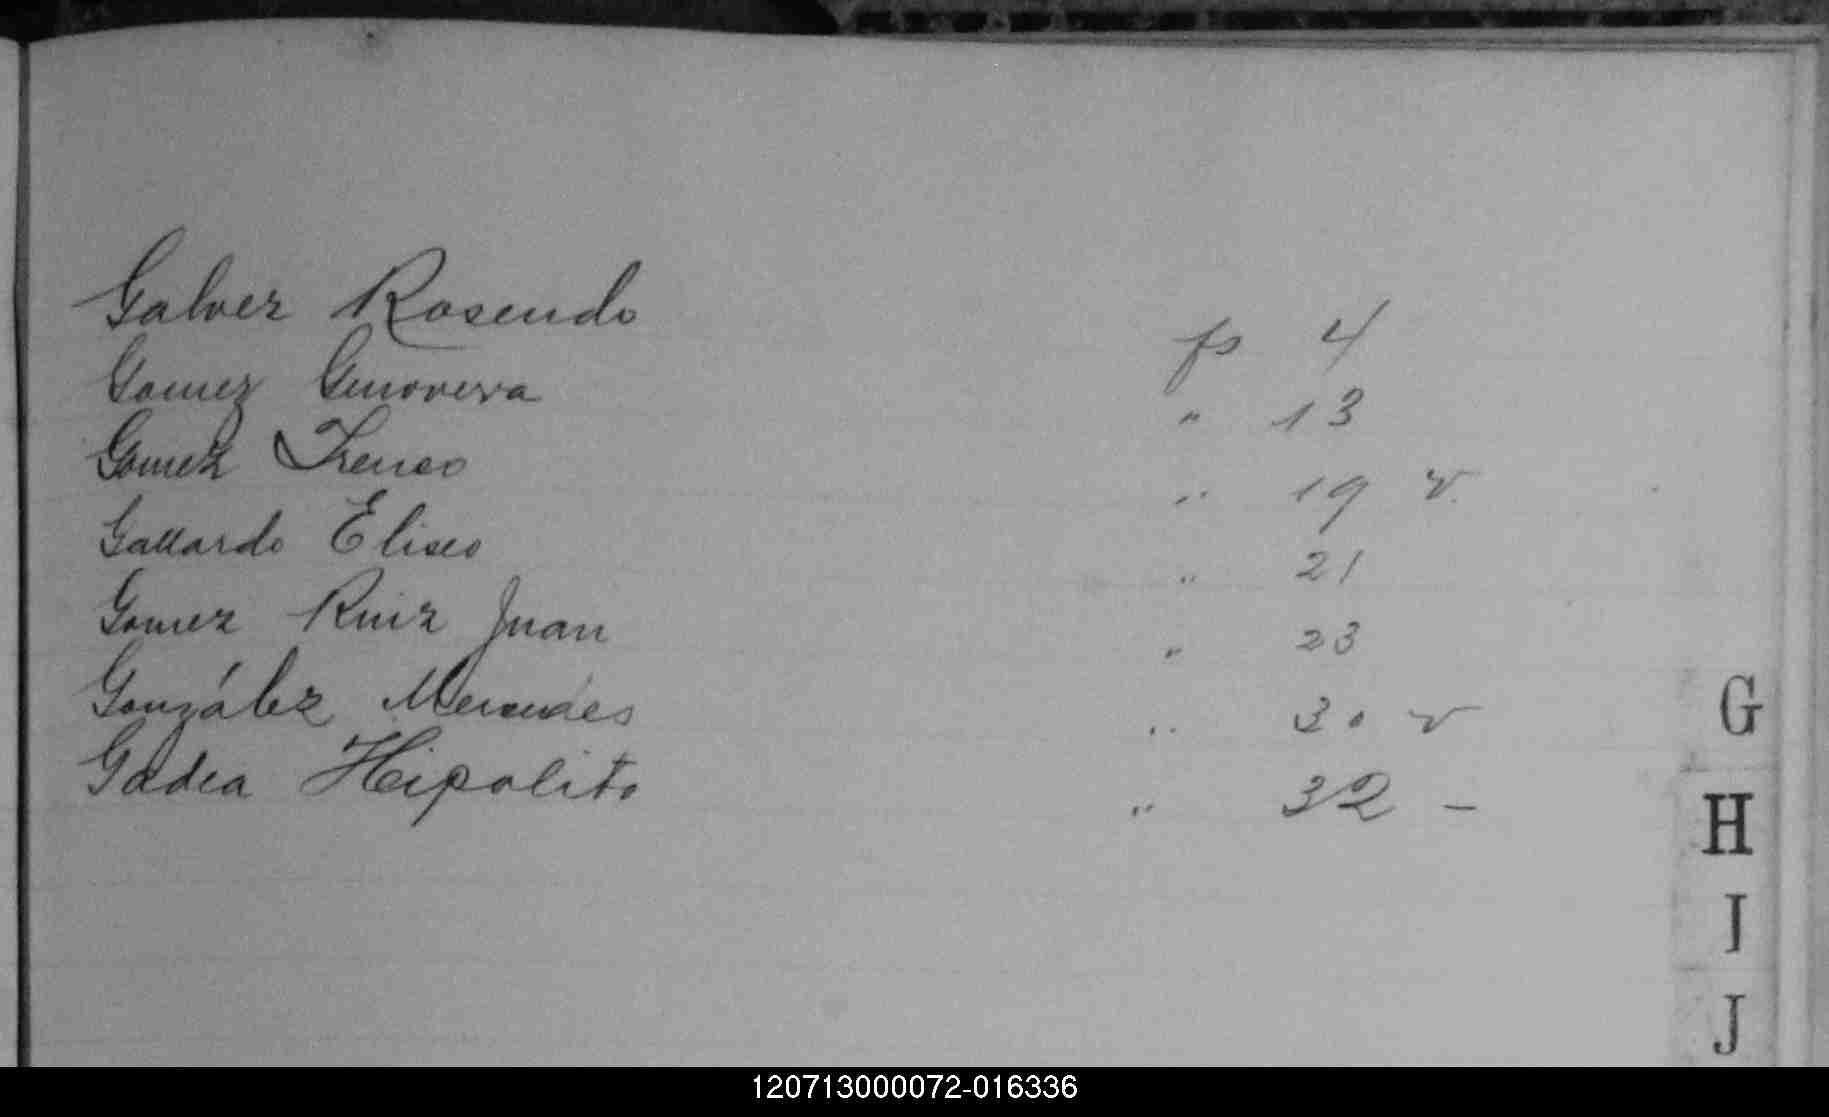 Galvez Rosendo fs 4
Gomez Genoveva " 13
Gomez Ireneo " 19 v.
Gallardo Eliseo " 21
Gomez Ruiz Juan " 23
González Mercedes " 30 v
Gadea Hipolito " 32 -
G
H
I
J
120713000072-016336